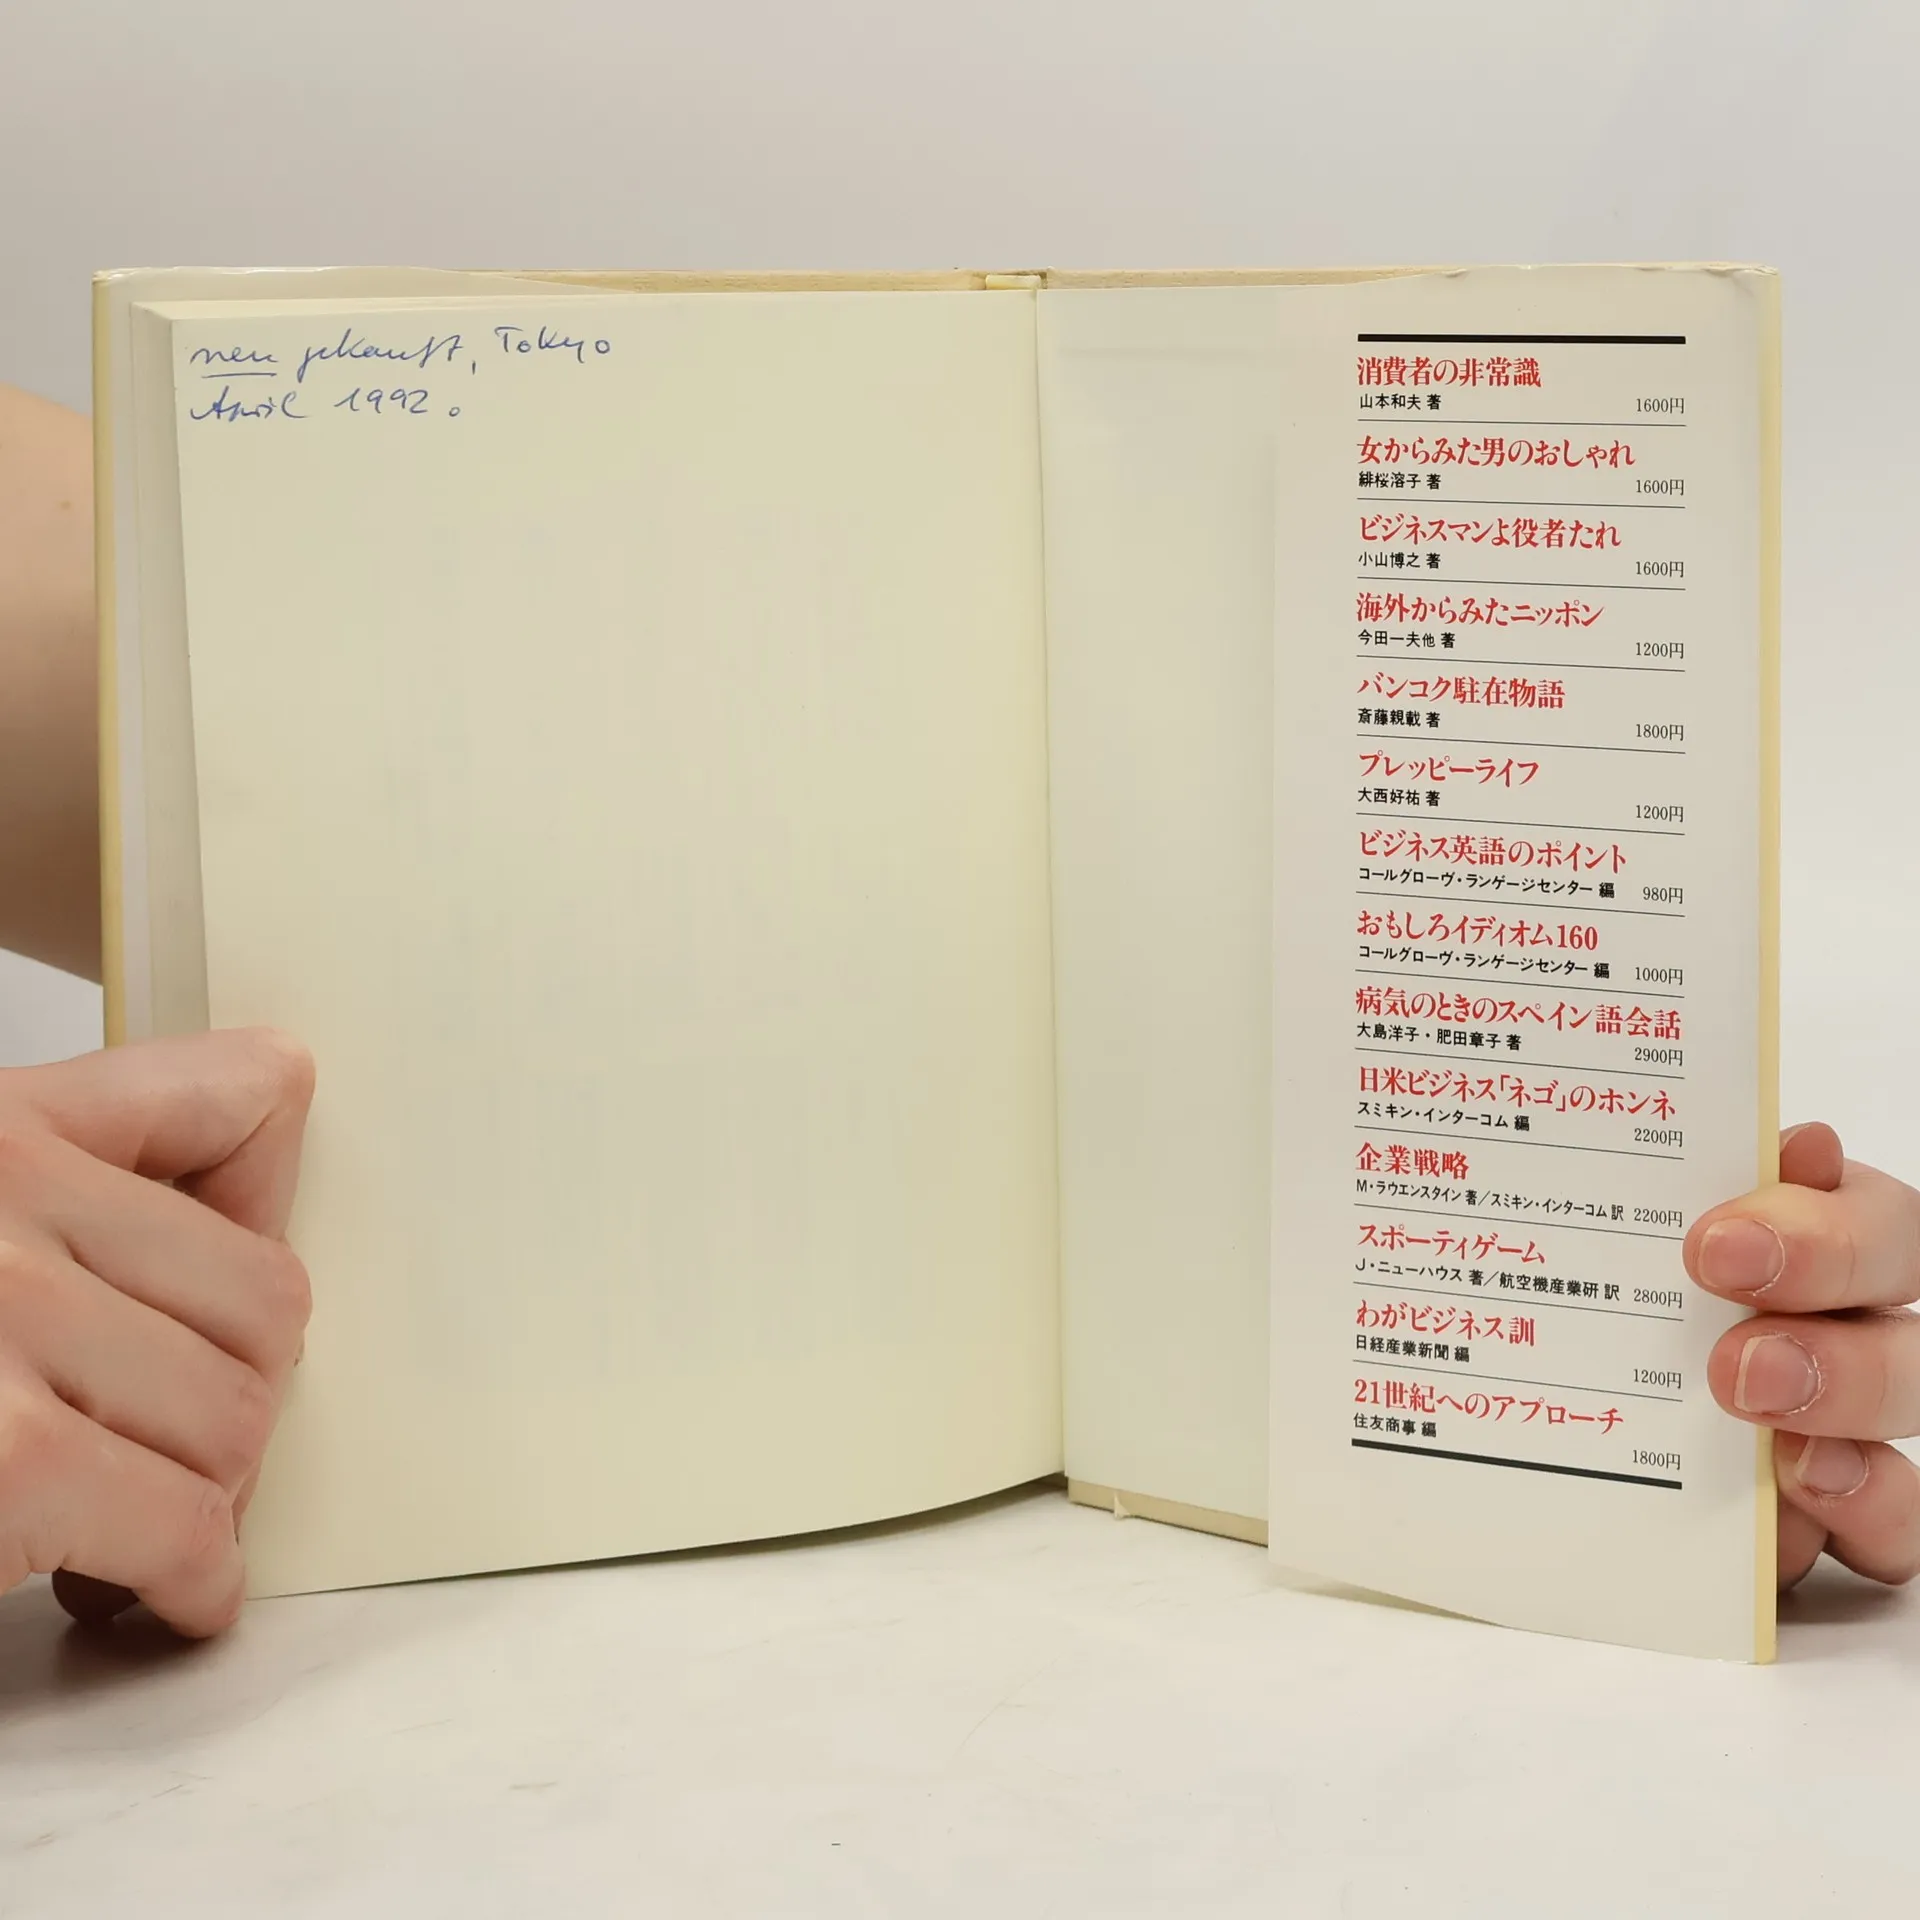 neu gekauft, Tokyo
April 1992.
消費者の非常識
山本和夫 著 1600円
女からみた男のおしゃれ
緋桜溶子 著 1600円
ビジネスマンよ役者たれ
小山博之 著 1600円
海外からみたニッポン
今田一夫他 著 1200円
バンコク駐在物語
斎藤親載 著 1800円
プレッピーライフ
大西好祐 著 1200円
ビジネス英語のポイント
コールグローヴ・ランゲージセンター 編 980円
おもしろイディオム160
コールグローヴ・ランゲージセンター 編 1000円
病気のときのスペイン語会話
大島洋子・肥田章子 著 2900円
日米ビジネス「ネゴ」のホンネ
スミキン・インターコム 編 2200円
企業戦略
M・ラウエンスタイン 著／スミキン・インターコム 訳 2200円
スポーティゲーム
J・ニューハウス 著／航空機産業研 訳 2800円
わがビジネス訓
日経産業新聞 編 1200円
21世紀へのアプローチ
住友商事 編 1800円